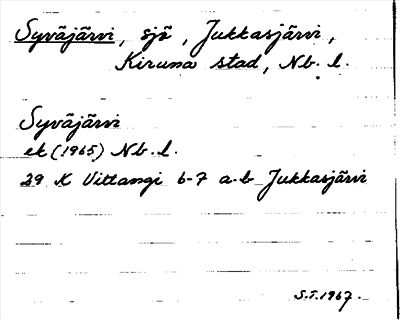 Syväjärvi, sjö, Jukkasjärvi,
Kiruna stad, Nb. l.
Syväjärvi
ek (1965) Nb. l.
29 K Vittangi 6-7 a-b Jukkasjärvi
S.T. 1967.